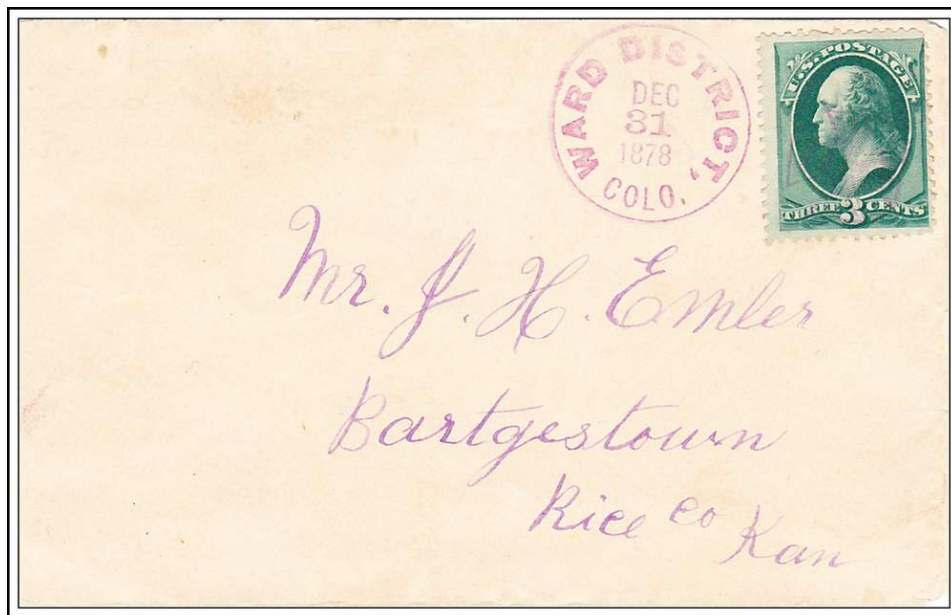 WARD DISTRICT,
DEC
31
1878
COLO.
U.S. POSTAGE
THREE 3 CENTS
Mr. J. H. Emler
Bartgestown
Rice co Kan